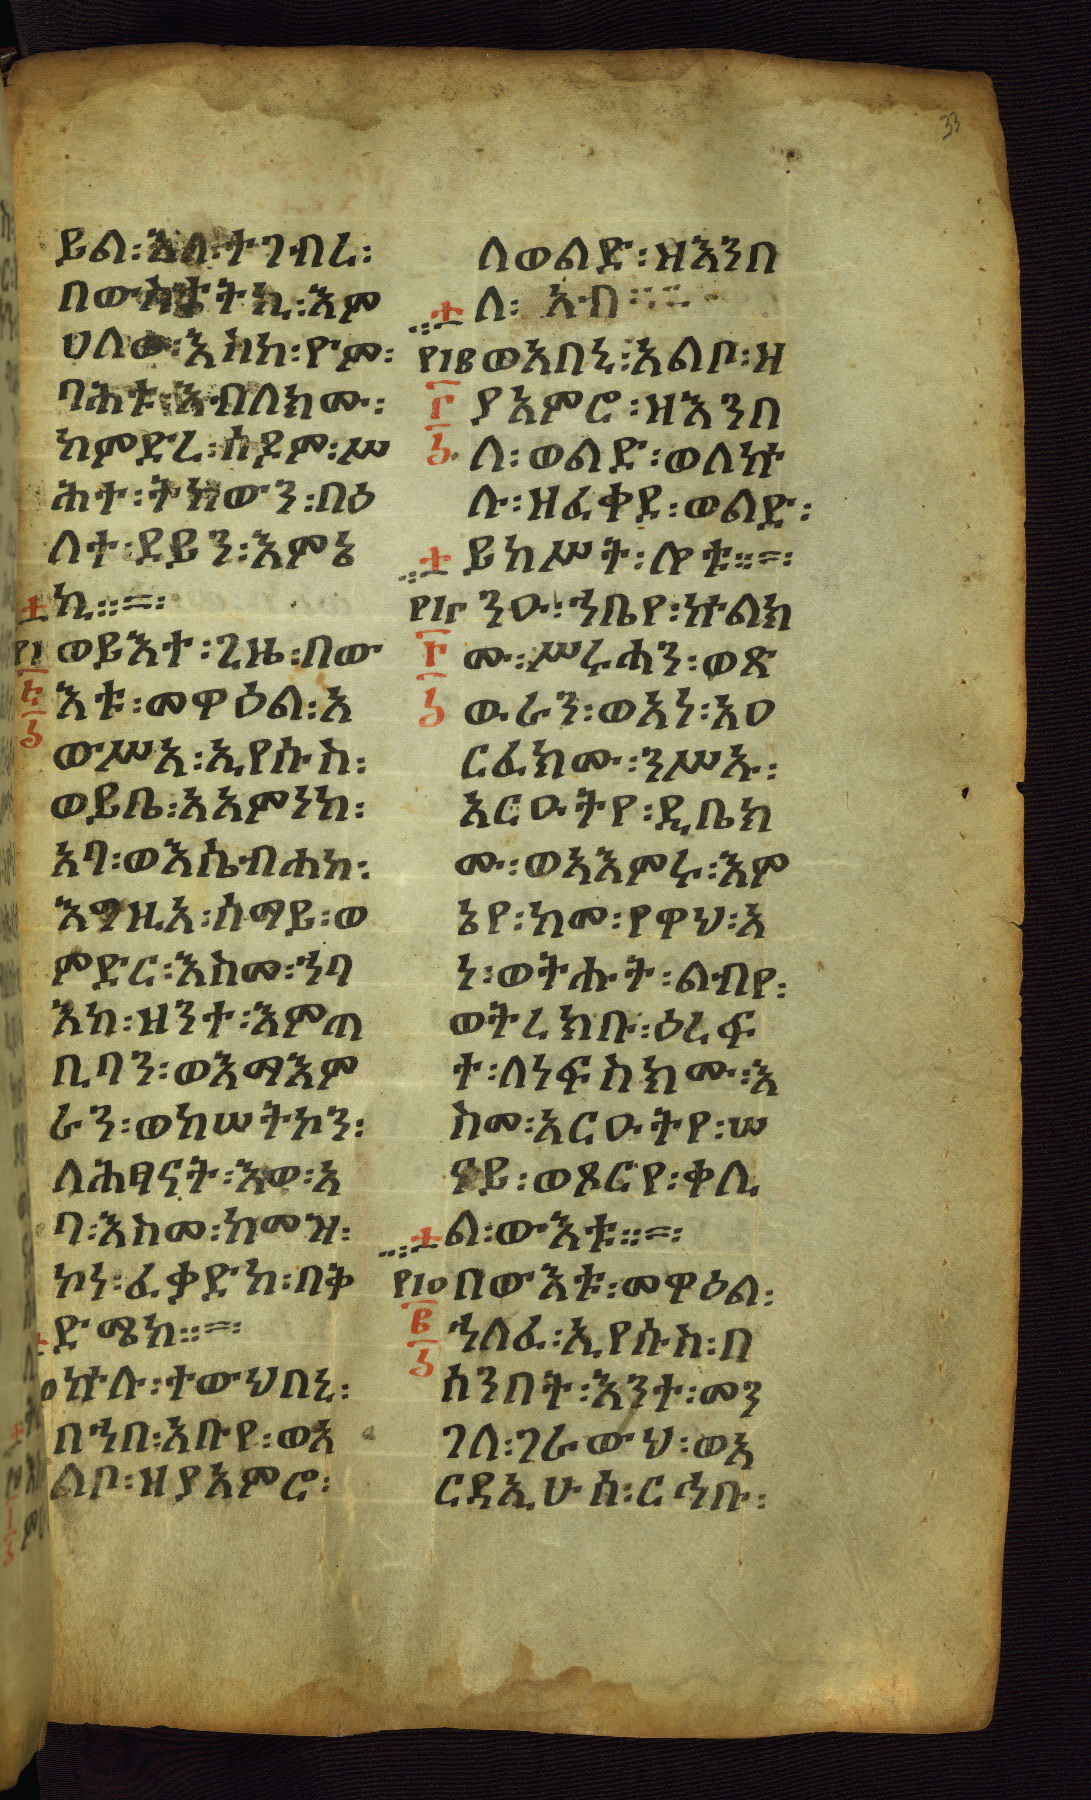 33
ይል፡እለ፡ተገብረ፡
በውስቴትኪ፡እም
ሀለወ፡እስከ፡ዮም፡
ባሕቱ፡እብለክሙ፡
ከምድረ፡ሰዶም፡ሥ
ሕተ፡ትከውን፡በዕ
ለተ፡ደይን፡እምኔ
ኪ።=፡
ወይእተ፡ጊዜ፡በው
እቱ፡መዋዕል፡አ
ውሥአ፡ኢየሱስ፡
ወይቤ፡አአምነከ፡
አባ፡ወእሴብሐከ፡
እግዚአ፡ሰማይ፡ወ
ምድር፡እስመ፡ኀባ
እከ፡ዝንተ፡እምጠ
ቢባን፡ወእማእም
ራን፡ወከሠትኮን፡
ለሕፃናት፡እወ፡አ
ባ፡እስመ፡ከመዝ፡
ኮነ፡ፈቃድከ፡በቅ
ድሜከ።=፡
ኵሉ፡ተውህበኒ፡
በኀበ፡አቡየ፡ወአ
ልቦ፡ዘያአምሮ፡
ለወልድ፡ዘእንበ
ለ፡ አብ፡
፻፲፪ ወአበኒ፡አልቦ፡ዘ
ያአምሮ፡ዘእንበ
ለ፡ወልድ፡ወለኵ
ሉ፡ዘፈቀደ፡ወልድ፡
ይከሥት፡ሎቱ።=፡
፻፲፫ ንዑ፡ኀቤየ፡ኵልክ
ሙ፡ሥሩሓን፡ወጽ
ዉራን፡ወአነ፡አዐ
ርፈክሙ፡ንሥኡ፡
አርዑትየ፡ዲቤክ
ሙ፡ወአእምሩ፡እም
ኔየ፡ከመ፡የዋህ፡አ
ነ፡ወትሑት፡ልብየ፡
ወትረክቡ፡ዕረፍ
ተ፡ለነፍስክሙ፡እ
ስመ፡አርዑትየ፡ሠ
ናይ፡ወጾርየ፡ቀሊ
ል፡ውእቱ።=፡
በውእቱ፡መዋዕል፡
ኀለፈ፡ኢየሱስ፡በ
ሰንበት፡እንተ፡መን
ገለ፡ገራውህ፡ወአ
ርዳኢሁሰ፡ርኀቡ፡